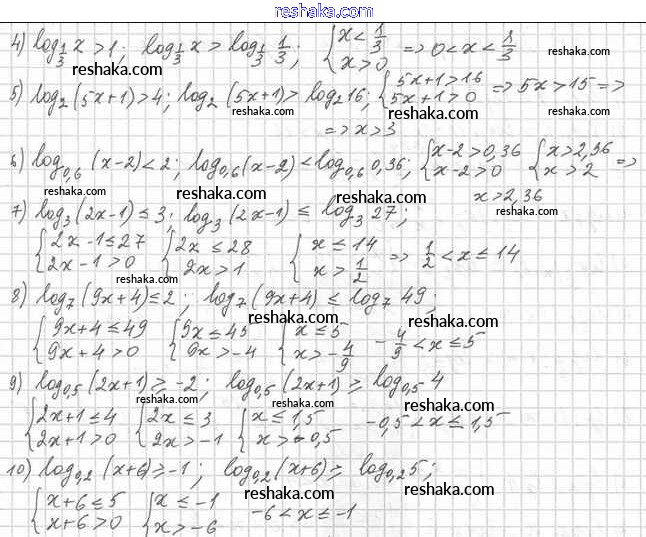 reshaka.com
4) log_{1/3} x > 1; log_{1/3} x > log_{1/3} 1/3; { x < 1/3 x > 0 => 0 < x < 1/3
reshaka.com reshaka.com reshaka.com
5) log₂(5x+1) > 4; log₂(5x+1) > log₂16; { 5x+1 > 16 5x+1 > 0 => 5x > 15 =>
reshaka.com reshaka.com
=> x > 3
6) log_{0,6}(x-2) < 2; log_{0,6}(x-2) < log_{0,6} 0,36; { x-2 > 0,36 x-2 > 0 { x > 2,36 x > 2 =>
reshaka.com reshaka.com reshaka.com reshaka.com
x > 2,36
7) log₃(2x-1) ≤ 3; log₃(2x-1) ≤ log₃ 27;
{ 2x-1 ≤ 27 2x-1 > 0 { 2x ≤ 28 2x > 1 { x ≤ 14 x > 1/2 => 1/2 < x ≤ 14
reshaka.com reshaka.com
8) log₇(9x+4) ≤ 2; log₇(9x+4) ≤ log₇ 49;
reshaka.com reshaka.com
{ 9x+4 ≤ 49 9x+4 > 0 { 9x ≤ 45 9x > -4 { x ≤ 5 x > -4/9 -4/9 < x ≤ 5
reshaka.com reshaka.com
9) log_{0,5}(2x+1) ≥ -2; log_{0,5}(2x+1) ≥ log_{0,5} 4
reshaka.com
{ 2x+1 ≤ 4 2x+1 > 0 { 2x ≤ 3 2x > -1 { x ≤ 1,5 x > -0,5 -0,5 < x ≤ 1,5
reshaka.com reshaka.com reshaka.com
10) log_{0,2}(x+6) ≥ -1; log_{0,2}(x+6) ≥ log_{0,2} 5;
reshaka.com
{ x+6 ≤ 5 x+6 > 0 { x ≤ -1 x > -6 -6 < x ≤ -1
reshaka.com reshaka.com reshaka.com